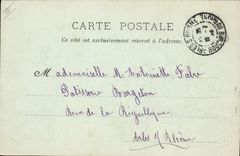 CARTE POSTALE
Ce côté est exclusivement réservé à l'adresse.
Mademoiselle M. Antoinette
Patisserie
Rue de la République
Arles s/ Rhône